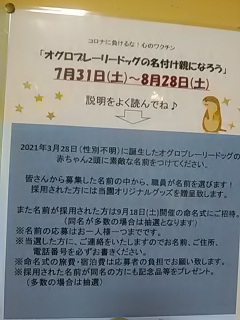 コロナに負けるな！心のワクチン
「オグロプレーリードッグの名付け親になろう」
7月31日(土)～8月28日(土)
説明をよく読んでね♪
2021年3月28日（性別不明）に誕生したオグロプレーリードッグの
赤ちゃん2頭に素敵な名前をつけてください。
皆さんから募集した名前の中から、職員が名前を選びます！
採用された方には当園オリジナルグッズを贈呈致します。
また名前が採用された方は9月18日(土)開催の命名式にご招待。
（同名が多数の場合は抽選となります）
※名前の応募はお一人様一つまでです。
※当選した方に、ご連絡をいたしますのでお名前、ご住所、
電話番号を必ずお書きください。
※命名式の旅費・宿泊費は応募者の負担でお願い致します。
※採用された名前が同名の方にも記念品等をプレゼント。
（多数の場合は抽選）